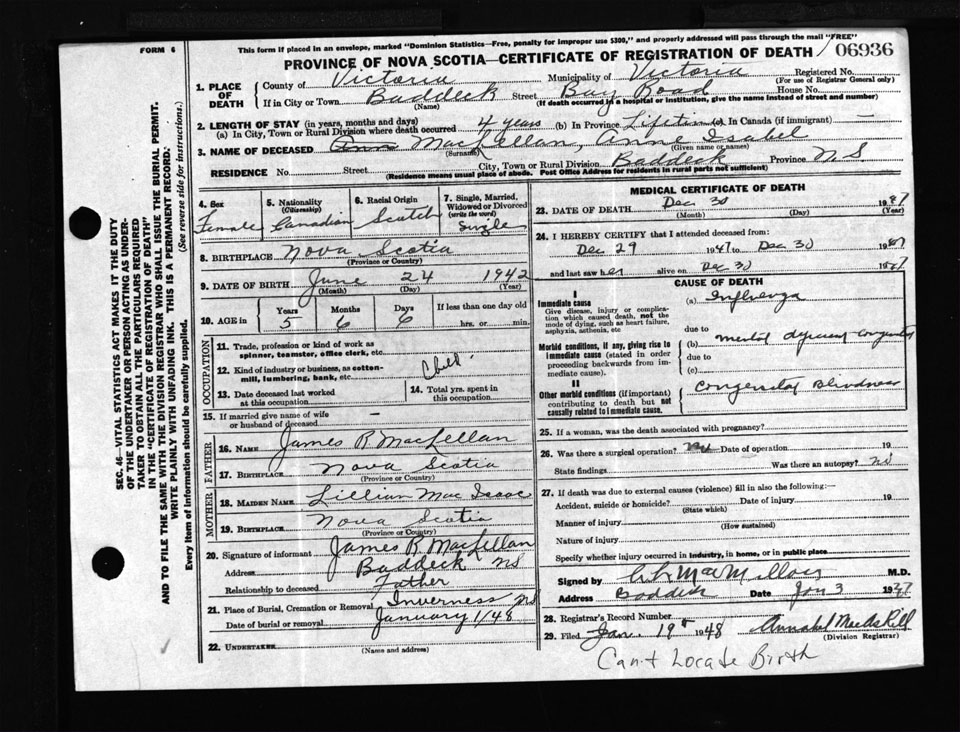 FORM 6
This form if placed in an envelope, marked "Dominion Statistics—Free, penalty for improper use $300," and properly addressed will pass through the mail "FREE"
PROVINCE OF NOVA SCOTIA—CERTIFICATE OF REGISTRATION OF DEATH / 06936
1. PLACE OF DEATH County of Victoria Municipality of Victoria Registered No. (For use of Registrar General only)
If in City or Town Baddeck (Name) Street Bay Road House No.
(If death occurred in a hospital or institution, give the name instead of street and number)
2. LENGTH OF STAY (in years, months and days)
(a) In City, Town or Rural Division where death occurred 4 years (b) In Province (c) In Canada (if immigrant) —
3. NAME OF DECEASED Ann MacLellan, Anne Isabel
(Surname) (Given name or names)
RESIDENCE No. Street City, Town or Rural Division Baddeck Province N S
(Residence means usual place of abode. Post Office Address for residents in rural parts not sufficient)
SEC. 46—VITAL STATISTICS ACT MAKES IT THE DUTY
OF THE UNDERTAKER OR PERSON ACTING AS UNDER-
TAKER TO OBTAIN ALL THE PARTICULARS REQUIRED
IN THE "CERTIFICATE OF REGISTRATION OF DEATH"
AND TO FILE THE SAME WITH THE DIVISION REGISTRAR WHO SHALL ISSUE THE BURIAL PERMIT.
WRITE PLAINLY WITH UNFADING INK. THIS IS A PERMANENT RECORD.
Every item of information should be carefully supplied. (See reverse side for instructions.)
4. Sex Female
5. Nationality (Citizenship) Canadian
6. Racial Origin Scotch
7. Single, Married, Widowed or Divorced (write the word) Single
8. BIRTHPLACE Nova Scotia
(Province or Country)
9. DATE OF BIRTH June 24 1942
(Month) (Day) (Year)
10. AGE in Years 5 Months 6 Days 6 If less than one day old hrs. or min.
OCCUPATION
11. Trade, profession or kind of work as spinner, teamster, office clerk, etc.
12. Kind of industry or business, as cotton-mill, lumbering, bank, etc. Child
13. Date deceased last worked at this occupation
14. Total yrs. spent in this occupation
15. If married give name of wife or husband of deceased —
FATHER
16. NAME James R MacLellan
17. BIRTHPLACE Nova Scotia
(Province or Country)
MOTHER
18. MAIDEN NAME Lillian Mac Isaac
19. BIRTHPLACE Nova Scotia
(Province or Country)
20. Signature of informant James R. MacLellan
Address Baddeck NS
Relationship to deceased Father
21. Place of Burial, Cremation or Removal Inverness NS
Date of burial or removal January 1/48
22. UNDERTAKER
(Name and address)
MEDICAL CERTIFICATE OF DEATH
23. DATE OF DEATH Dec 30 1947
(Month) (Day) (Year)
24. I HEREBY CERTIFY that I attended deceased from:
Dec 29 1947 to Dec 30 1947
and last saw her alive on Dec 30 1947
CAUSE OF DEATH
I
Immediate cause
Give disease, injury or complication which caused death, not the mode of dying, such as heart failure, asphyxia, asthenia, etc
(a) Influenza
due to
Morbid conditions, if any, giving rise to immediate cause (stated in order proceeding backwards from immediate cause).
(b) mental
due to
(c)
II
Other morbid conditions (if important) contributing to death but not causally related to immediate cause.
Congenital Blindness
25. If a woman, was the death associated with pregnancy?
26. Was there a surgical operation? Date of operation 19
State findings Was there an autopsy? no
27. If death was due to external causes (violence) fill in also the following:—
Accident, suicide or homicide? Date of injury 19
(State which)
Manner of injury
(How sustained)
Nature of injury
Specify whether injury occurred in industry, in home, or in public place
Signed by MacMillan M.D.
Address Baddeck Date Jan 3 19
28. Registrar's Record Number
29. Filed Jan. 19 1948 Annabel
(Division Registrar)
Can't Locate Birth